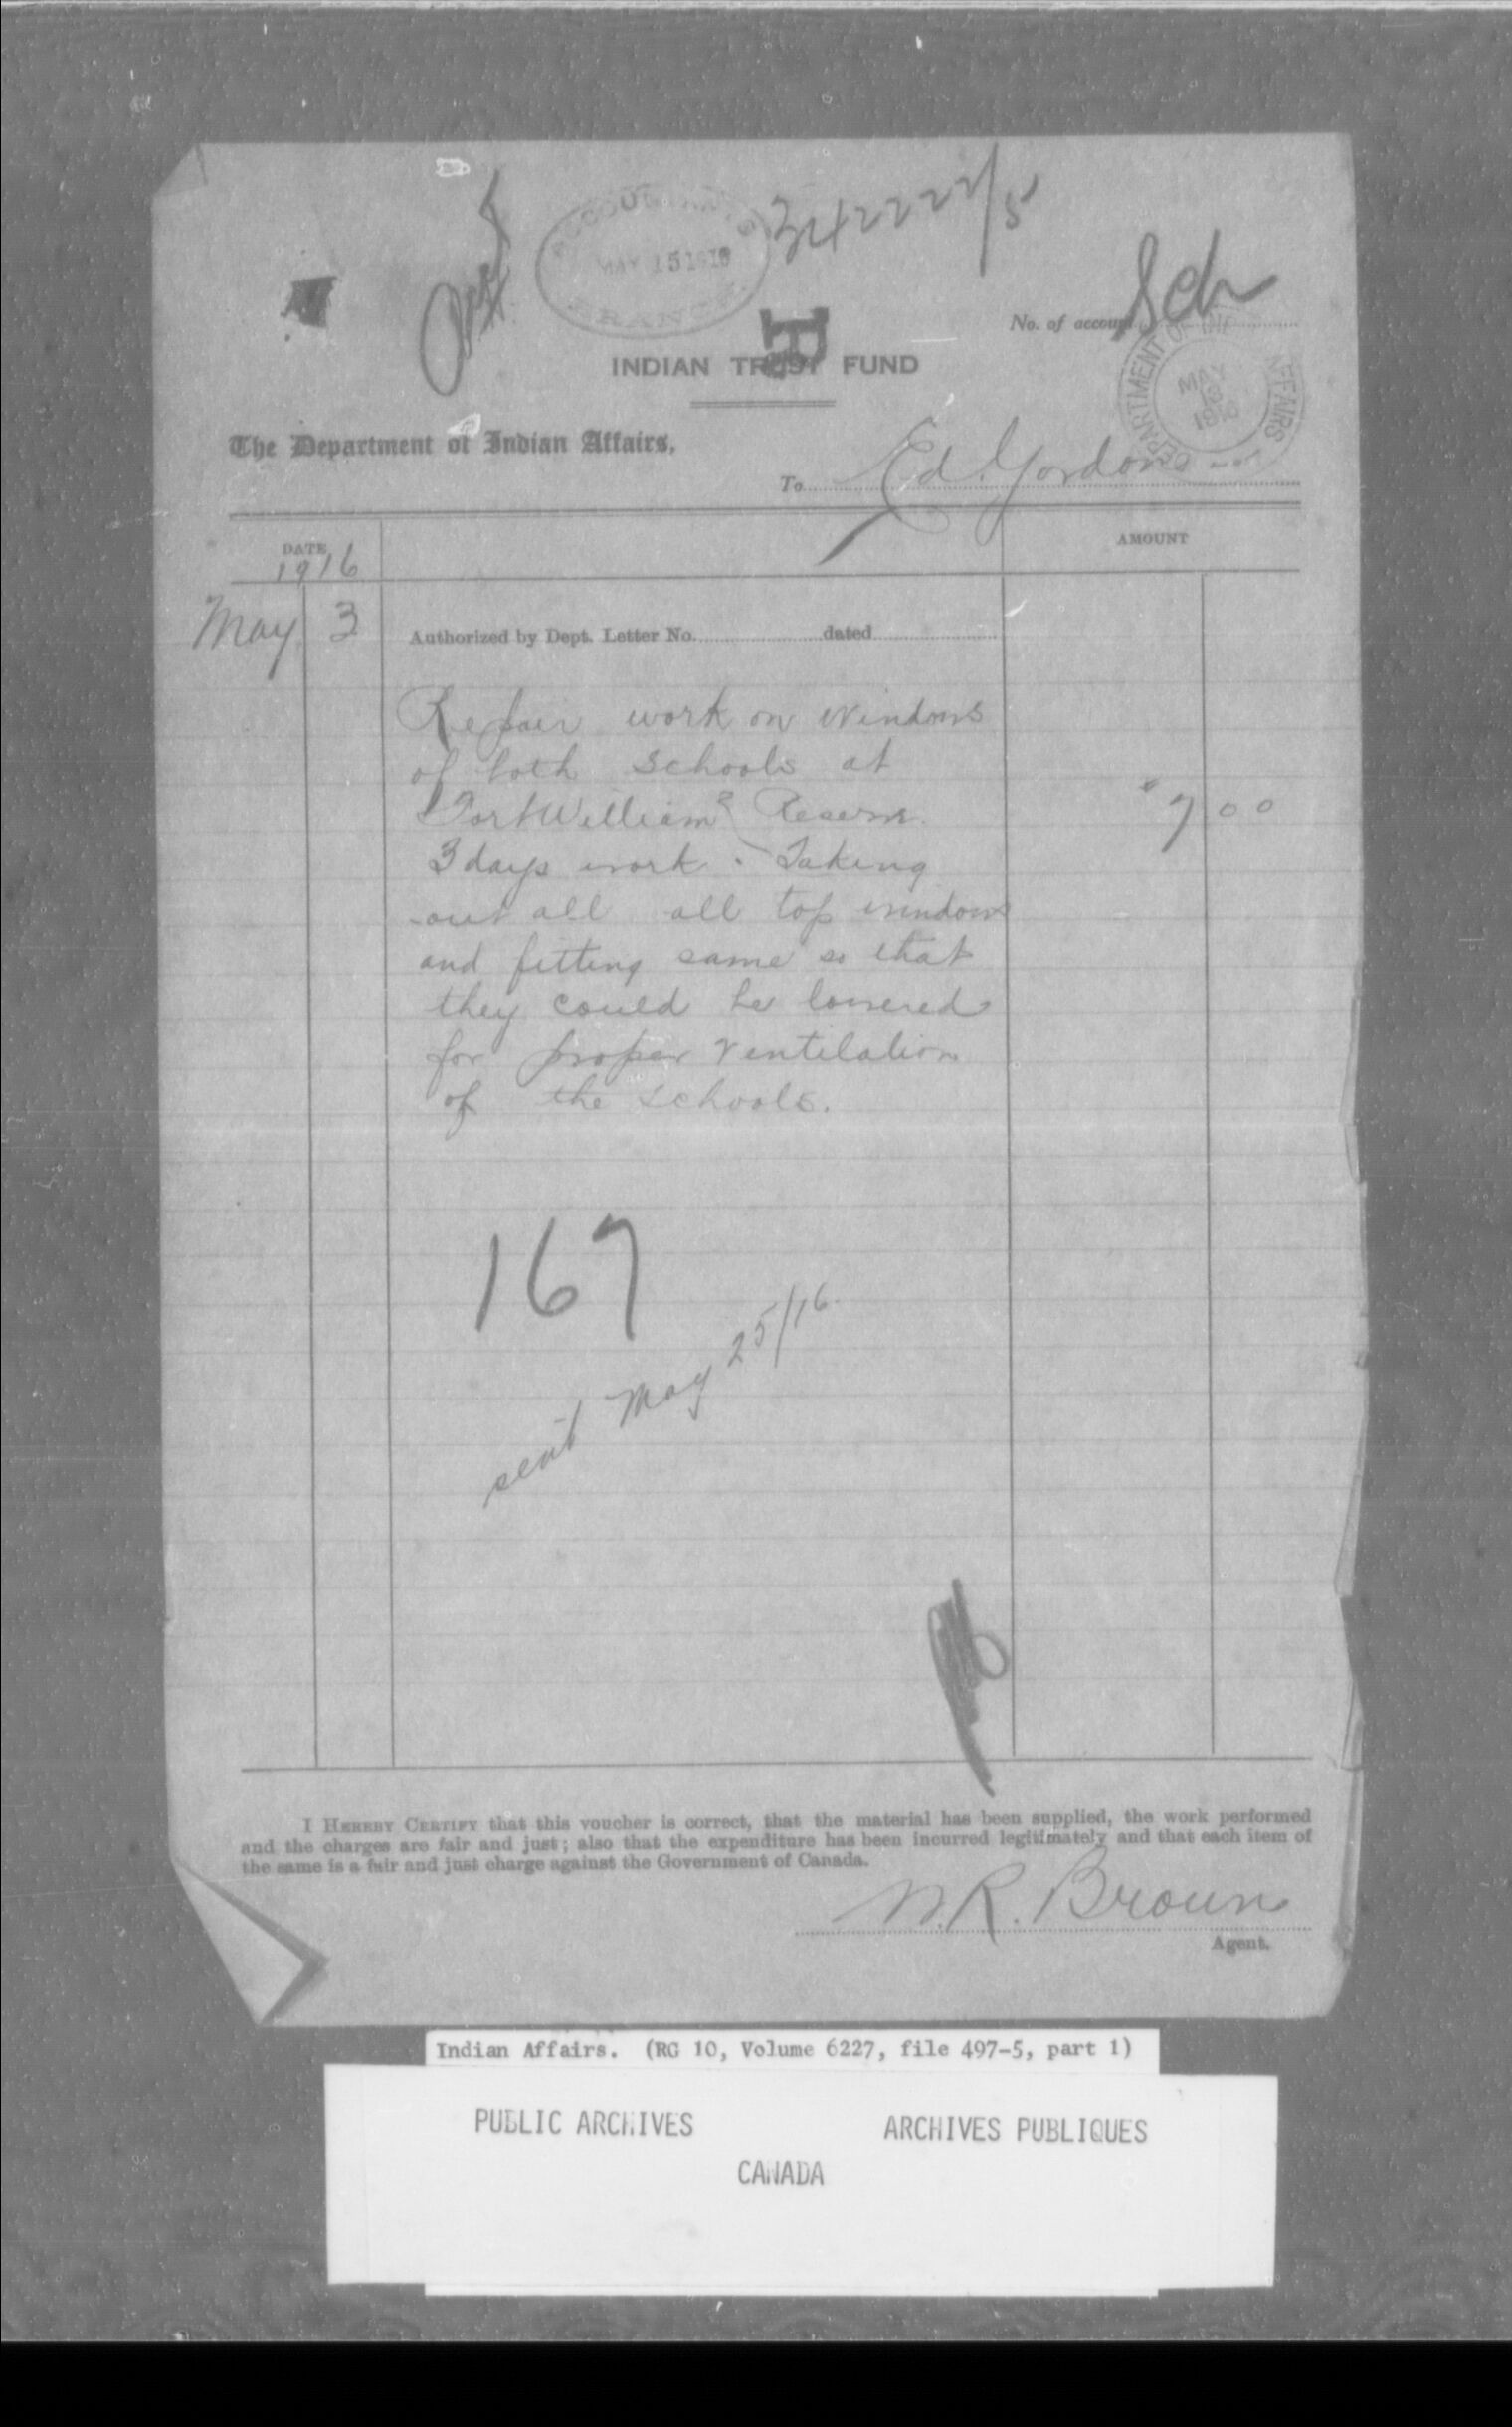 342222/5
ACCOUNTANT'S
MAY 15 1916
BRANCH.
Sch
No. of account
INDIAN TRUST FUND
DEPARTMENT OF INDIAN AFFAIRS
MAY
16
1916
The Department of Indian Affairs,
To Ed. Gordon
DATE
1916
AMOUNT
May 3
Authorized by Dept. Letter No. dated
Repair work on Windows
of both schools at
Fort William Reserve. 7 00
3 days work. Taking
out all all top windows
and fitting same so that
they could be lowered
for proper ventilation
of the schools.
167
sent May 25/16
I HEREBY CERTIFY that this voucher is correct, that the material has been supplied, the work performed
and the charges are fair and just; also that the expenditure has been incurred legitimately and that each item of
the same is a fair and just charge against the Government of Canada.
W.R. Brown
Agent.
Indian Affairs. (RG 10, Volume 6227, file 497-5, part 1)
PUBLIC ARCHIVES ARCHIVES PUBLIQUES
CANADA